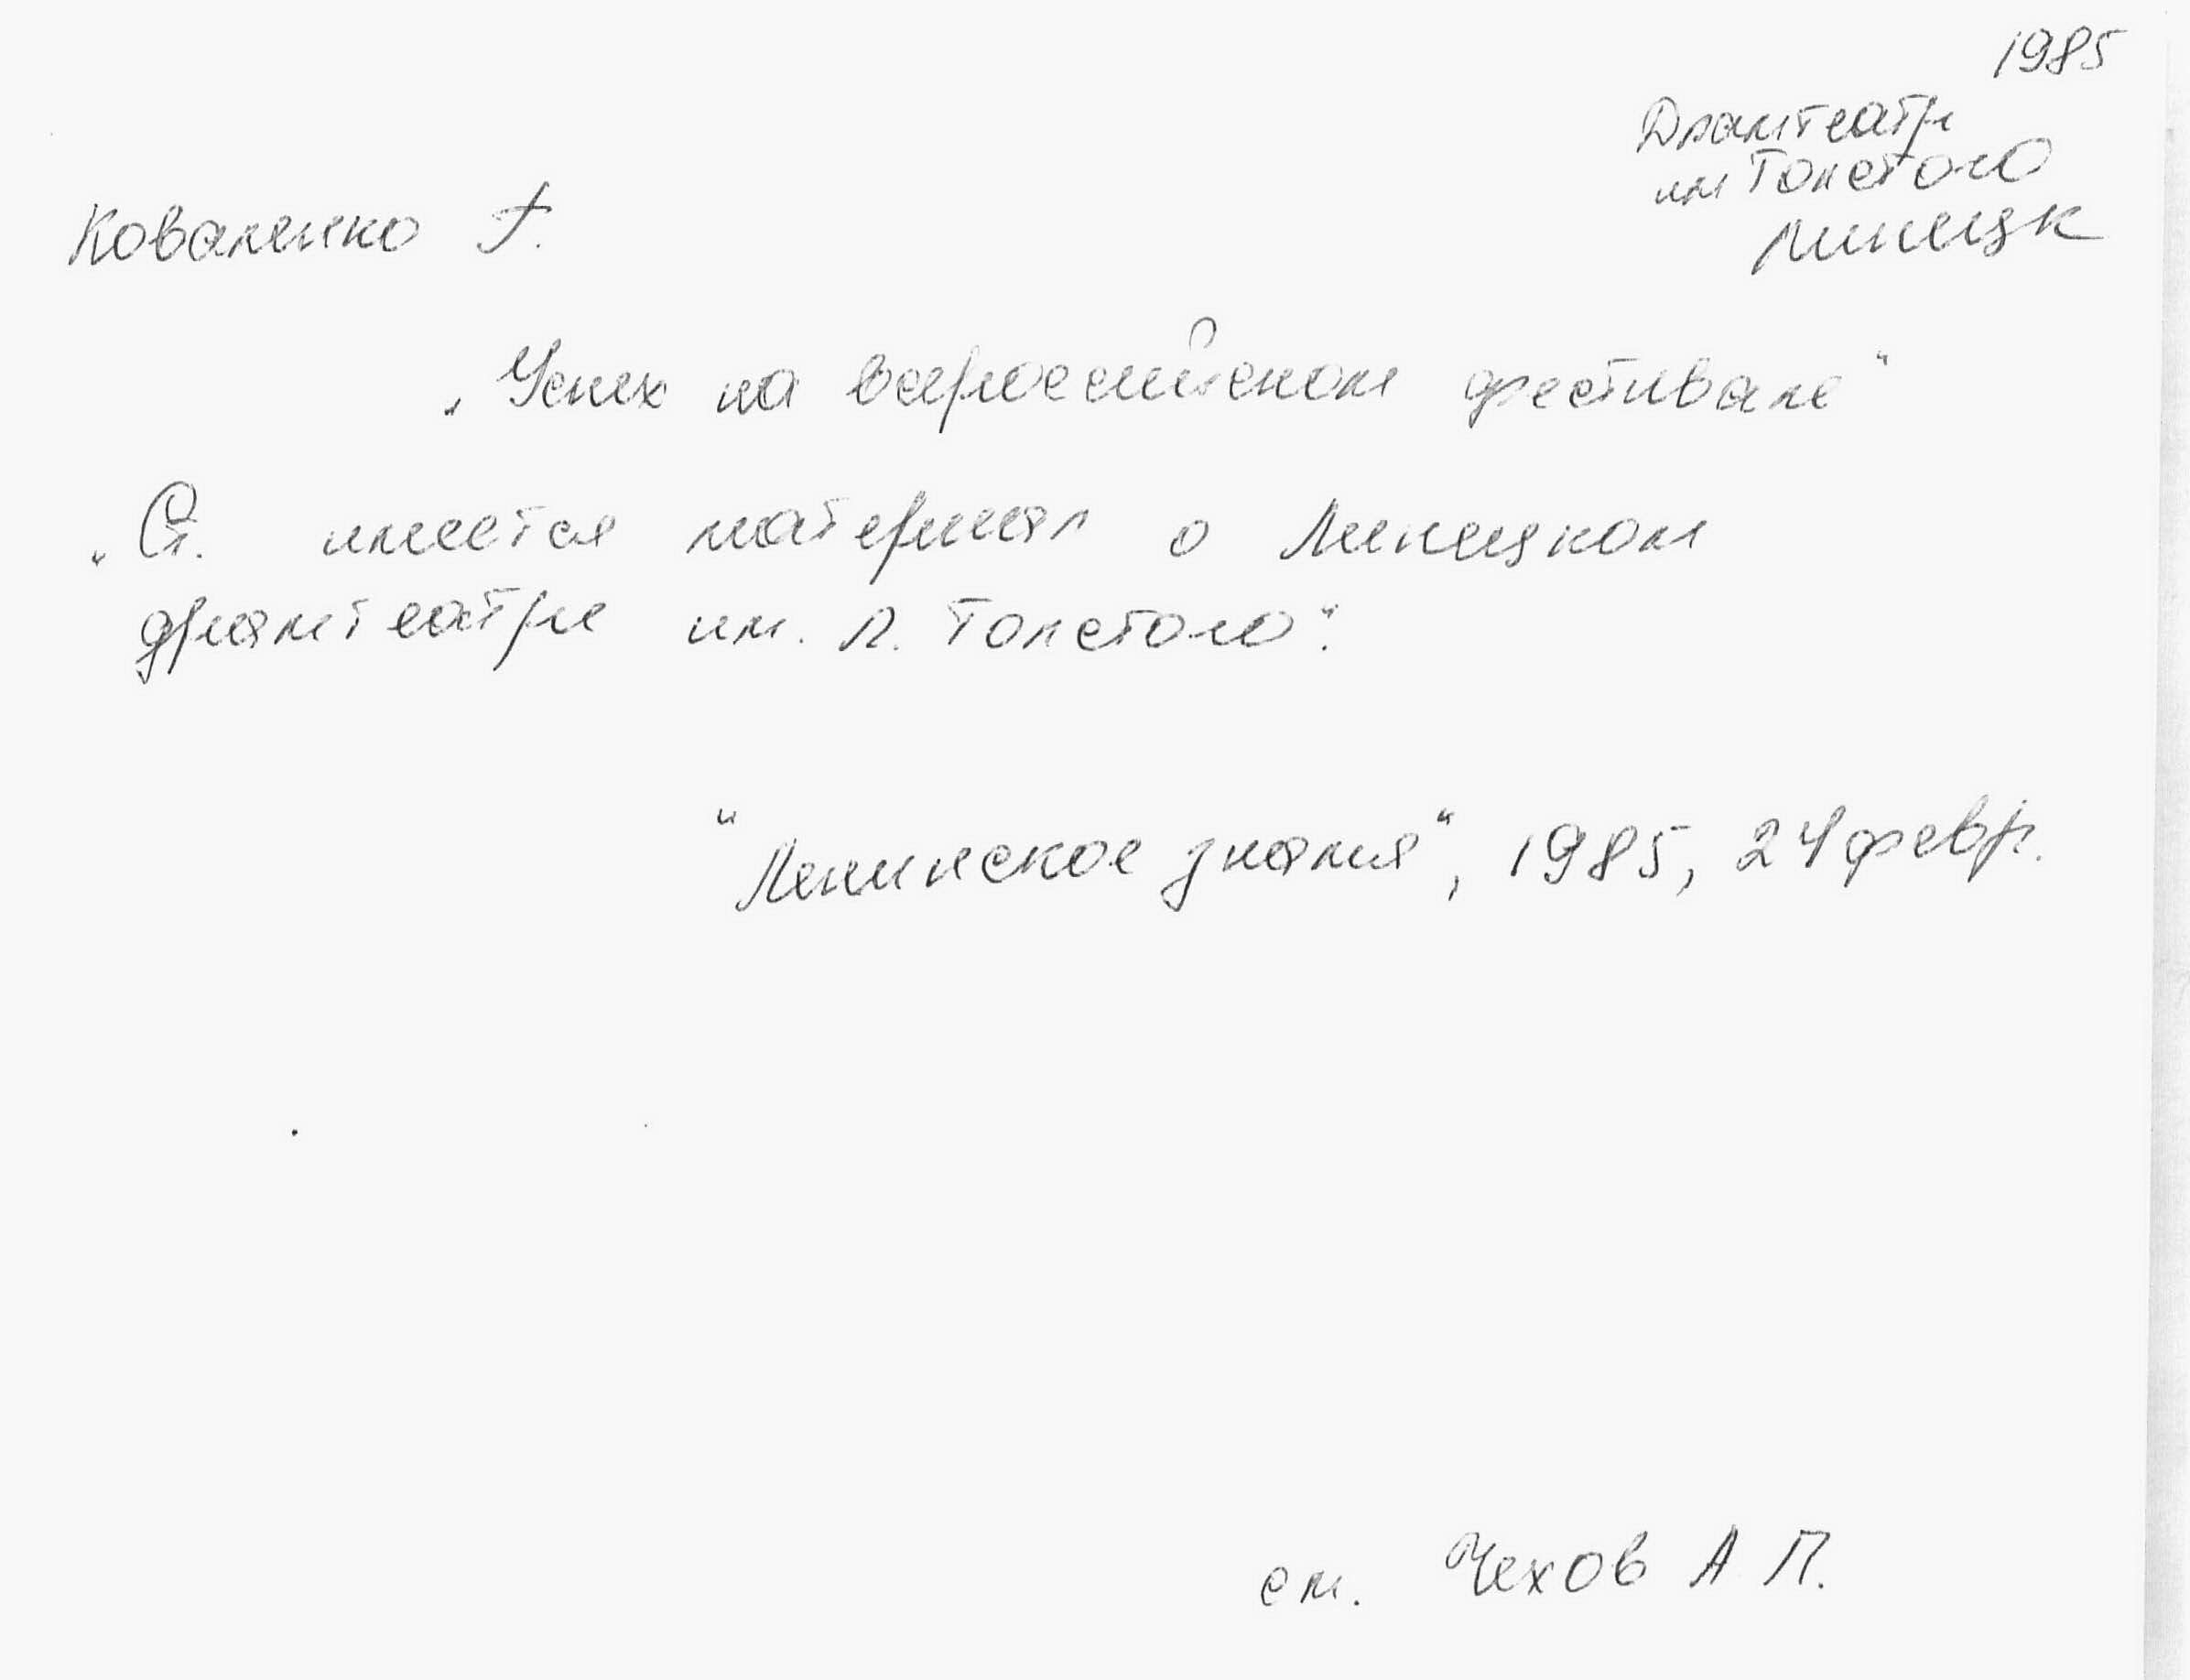 1985
Драмтеатр
им Толстого
Липецк
Коваленко Г.
„Успех на всероссийском фестивале“
„Ст. имеется материал о Липецком
драмтеатре им. Л. Толстого“.
"Ленинское знамя", 1985, 24 февр.
см. Чехов А П.